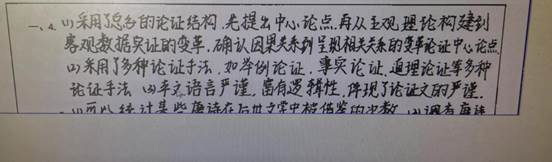 一、4. (1)采用了总分的论证结构,先提出中心论点,再从主观理论构建到
客观数据实证的变革,确认因果关系到呈现相关关系的变革论证中心论点
(2)采用了多种论证手法,如举例论证、事实论证、道理论证等多种
论证手法 (3)本文语言严谨,富有逻辑性,体现了论证文的严谨.
可以统计某些唐诗在后世文学中被借鉴的次数